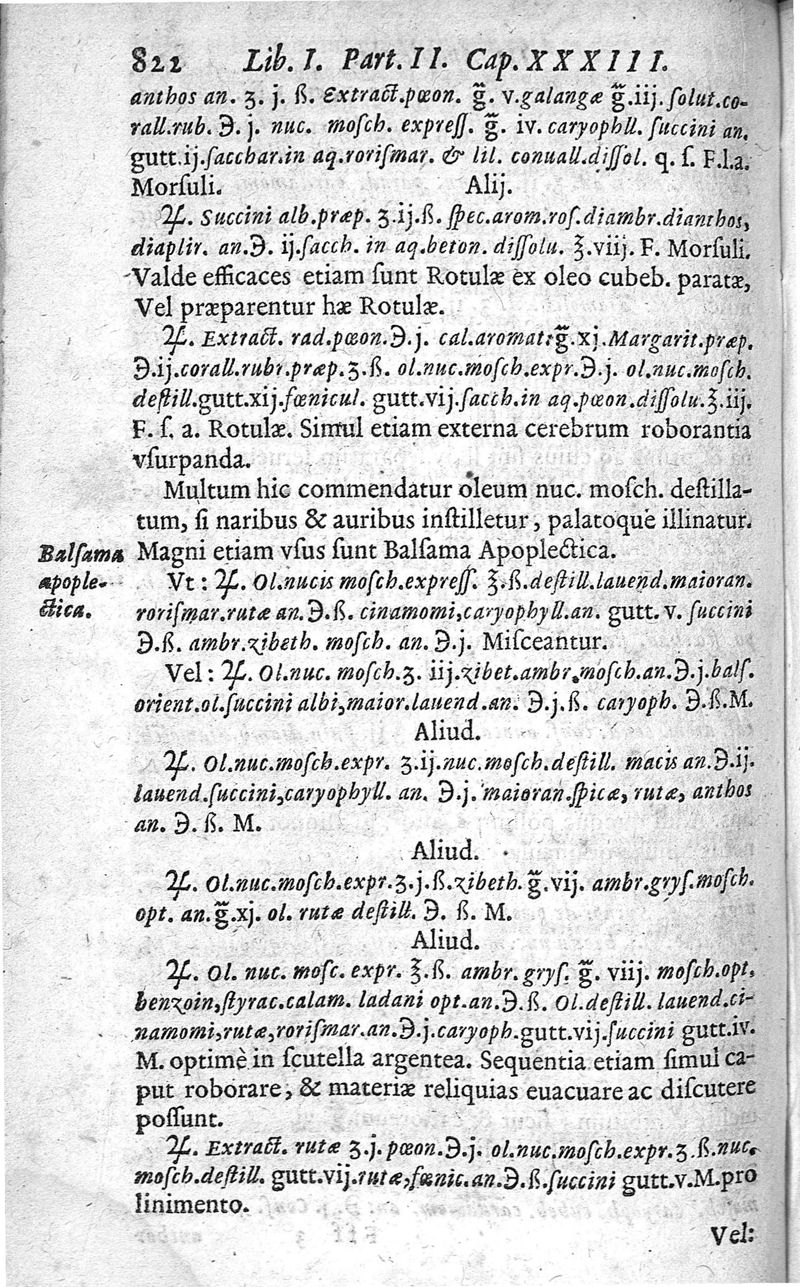 822 Lib. I. Part. II. Cap. XXXIII.
anthos an. ʒ. j. ß. Extract. pœon. g̃. v. galangæ g̃. iij. ſolut. co-
rall. rub. ℈. j. nuc. moſch. expreſſ. g̃. iv. caryophll. ſuccini an.
gutt. ij. ſacchar. in aq. roriſmar. & lil. conuall. diſſol. q. ſ. F. l. a.
Morſuli. Alij.
℞. Succini alb. præp. ʒ. ij. ß. ſpec. arom. roſ. diambr. dianthos,
diaplir. an. ℈. ij. ſacch. in aq. beton. diſſolu. ℥. viij. F. Morſuli.
Valde efficaces etiam ſunt Rotulæ ex oleo cubeb. paratæ,
Vel præparentur hæ Rotulæ.
℞. Extract. rad. pœon. ℈. j. cal. aromat: g̃. xj. Margarit. præp.
℈. ij. corall. rubr. præp. ʒ. ß. ol. nuc. moſch. expr. ℈. j. ol. nuc. moſch.
deſtill. gutt. xij. fœnicul. gutt. vij. ſacch. in aq. pœon. diſſolu. ℥. iij.
F. ſ. a. Rotulæ. Simul etiam externa cerebrum roborantia
vſurpanda.
Multum hic commendatur oleum nuc. moſch. deſtilla-
tum, ſi naribus & auribus inſtilletur, palatoque illinatur.
Balſama Magni etiam vſus ſunt Balſama Apoplectica.
apople- Vt: ℞. Ol. nucis moſch. expreſſ. ℥. ß. deſtill. lauend. maioran.
ctica. roriſmar. rutæ an. ℈. ß. cinamomi, caryophyll. an. gutt. v. ſuccini
℈. ß. ambr. zibeth. moſch. an. ℈. j. Miſceantur.
Vel: ℞. Ol. nuc. moſch. ʒ. iij. zibet. ambr. moſch. an. ℈. j. balſ.
orient. ol. ſuccini albi, maior. lauend. an. ℈. j. ß. caryoph. ℈. ß. M.
Aliud.
℞. Ol. nuc. moſch. expr. ʒ. ij. nuc. moſch. deſtill. macis an. ℈. ij.
lauend. ſuccini, caryophyll. an. ℈. j. maioran. ſpicæ, rutæ, anthos
an. ℈. ß. M.
Aliud.
℞. Ol. nuc. moſch. expr. ʒ. j. ß. zibeth. g̃. vij. ambr. gryſ. moſch.
opt. an. g̃. xj. ol. rutæ deſtill. ℈. ß. M.
Aliud.
℞. Ol. nuc. moſc. expr. ℥. ß. ambr. gryſ. g̃. viij. moſch. opt,
benzoin, ſtyrac. calam. ladani opt. an. ℈. ß. Ol. deſtill. lauend. ci-
namomi, rutæ, roriſmar. an. ℈. j. caryoph. gutt. vij. ſuccini gutt. iv.
M. optimè in ſcutella argentea. Sequentia etiam ſimul ca-
put roborare, & materiæ reliquias euacuare ac diſcutere
poſſunt.
℞. Extract. rutæ ʒ. j. pœon. ℈. j. ol. nuc. moſch. expr. ʒ. ß. nuc.
moſch. deſtill. gutt. vij. rutæ, fœnic. an. ℈. ß. ſuccini gutt. v. M. pro
linimento.
Vel: